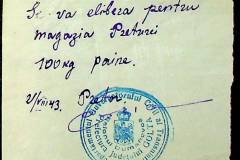 Se va elibera pentru
magazia Preturei
100 kg paine.
2/VIII 43. Pretor,
Prefectura Judetului GOLTA